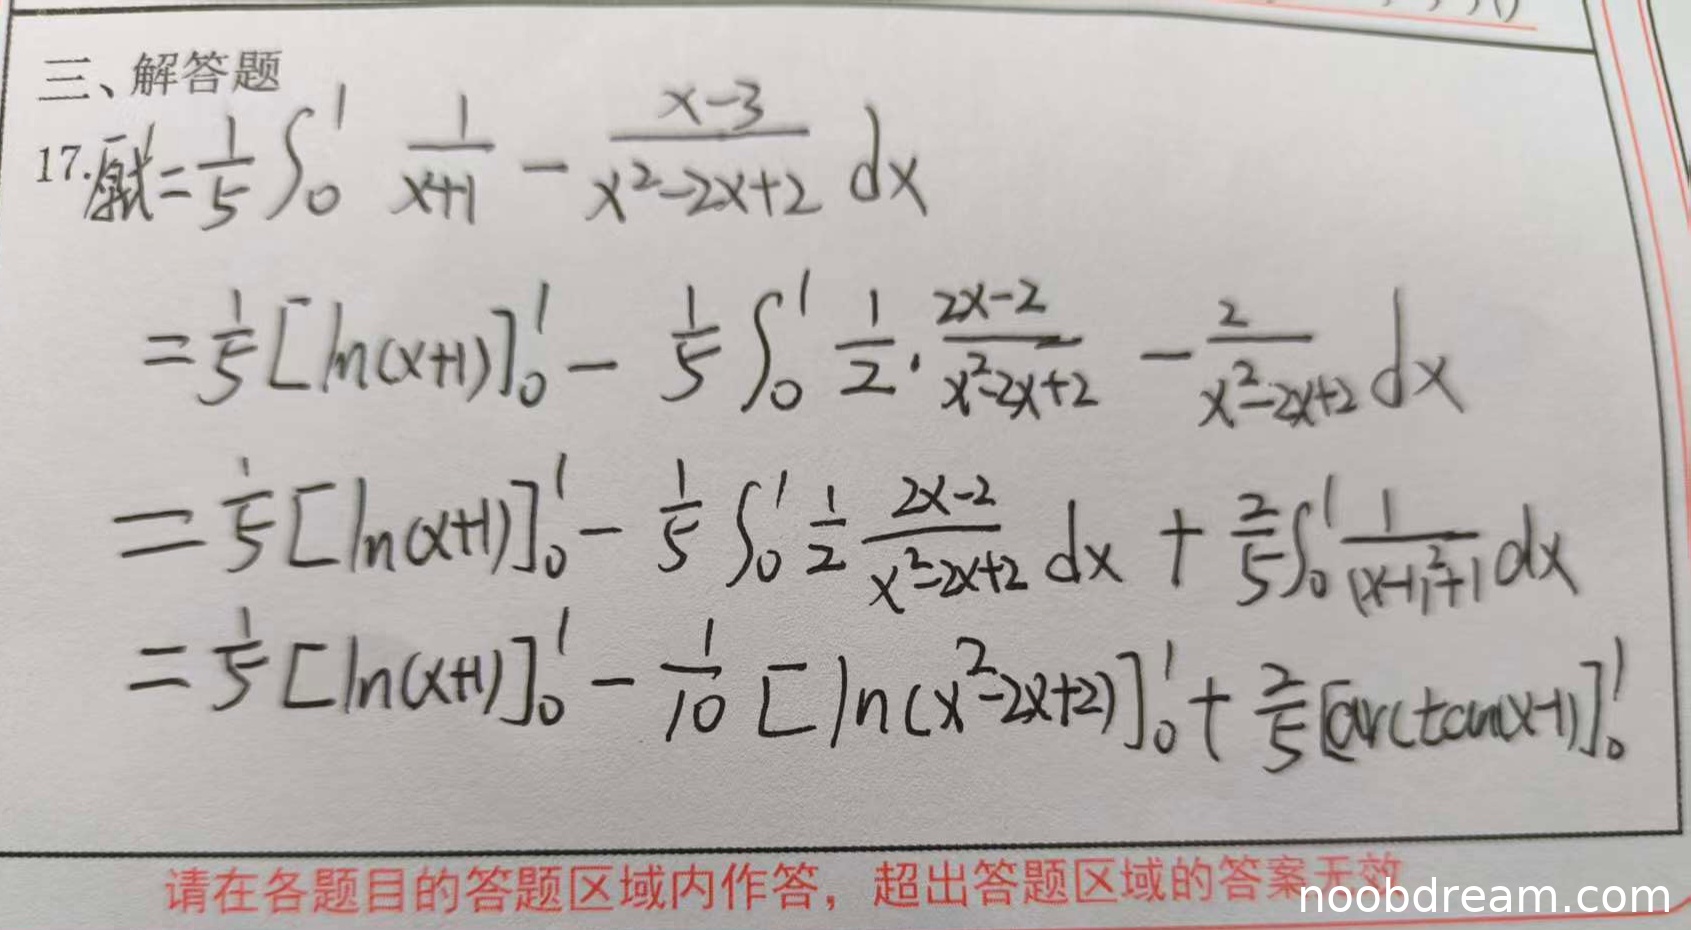 三、解答题
17.原式=\frac{1}{5}∫_0^1 \frac{1}{x+1} - \frac{x-3}{x^2-2x+2} dx
=\frac{1}{5}[ln(x+1)]_0^1 - \frac{1}{5}∫_0^1 \frac{1}{2}·\frac{2x-2}{x^2-2x+2} - \frac{2}{x^2-2x+2} dx
=\frac{1}{5}[ln(x+1)]_0^1 - \frac{1}{5}∫_0^1 \frac{1}{2} \frac{2x-2}{x^2-2x+2} dx + \frac{2}{5}∫_0^1 \frac{1}{(x-1)^2+1} dx
=\frac{1}{5}[ln(x+1)]_0^1 - \frac{1}{10}[ln(x^2-2x+2)]_0^1 + \frac{2}{5}[arctan(x-1)]_0^1
请在各题目的答题区域内作答，超出答题区域的答案无效
noobdream.com